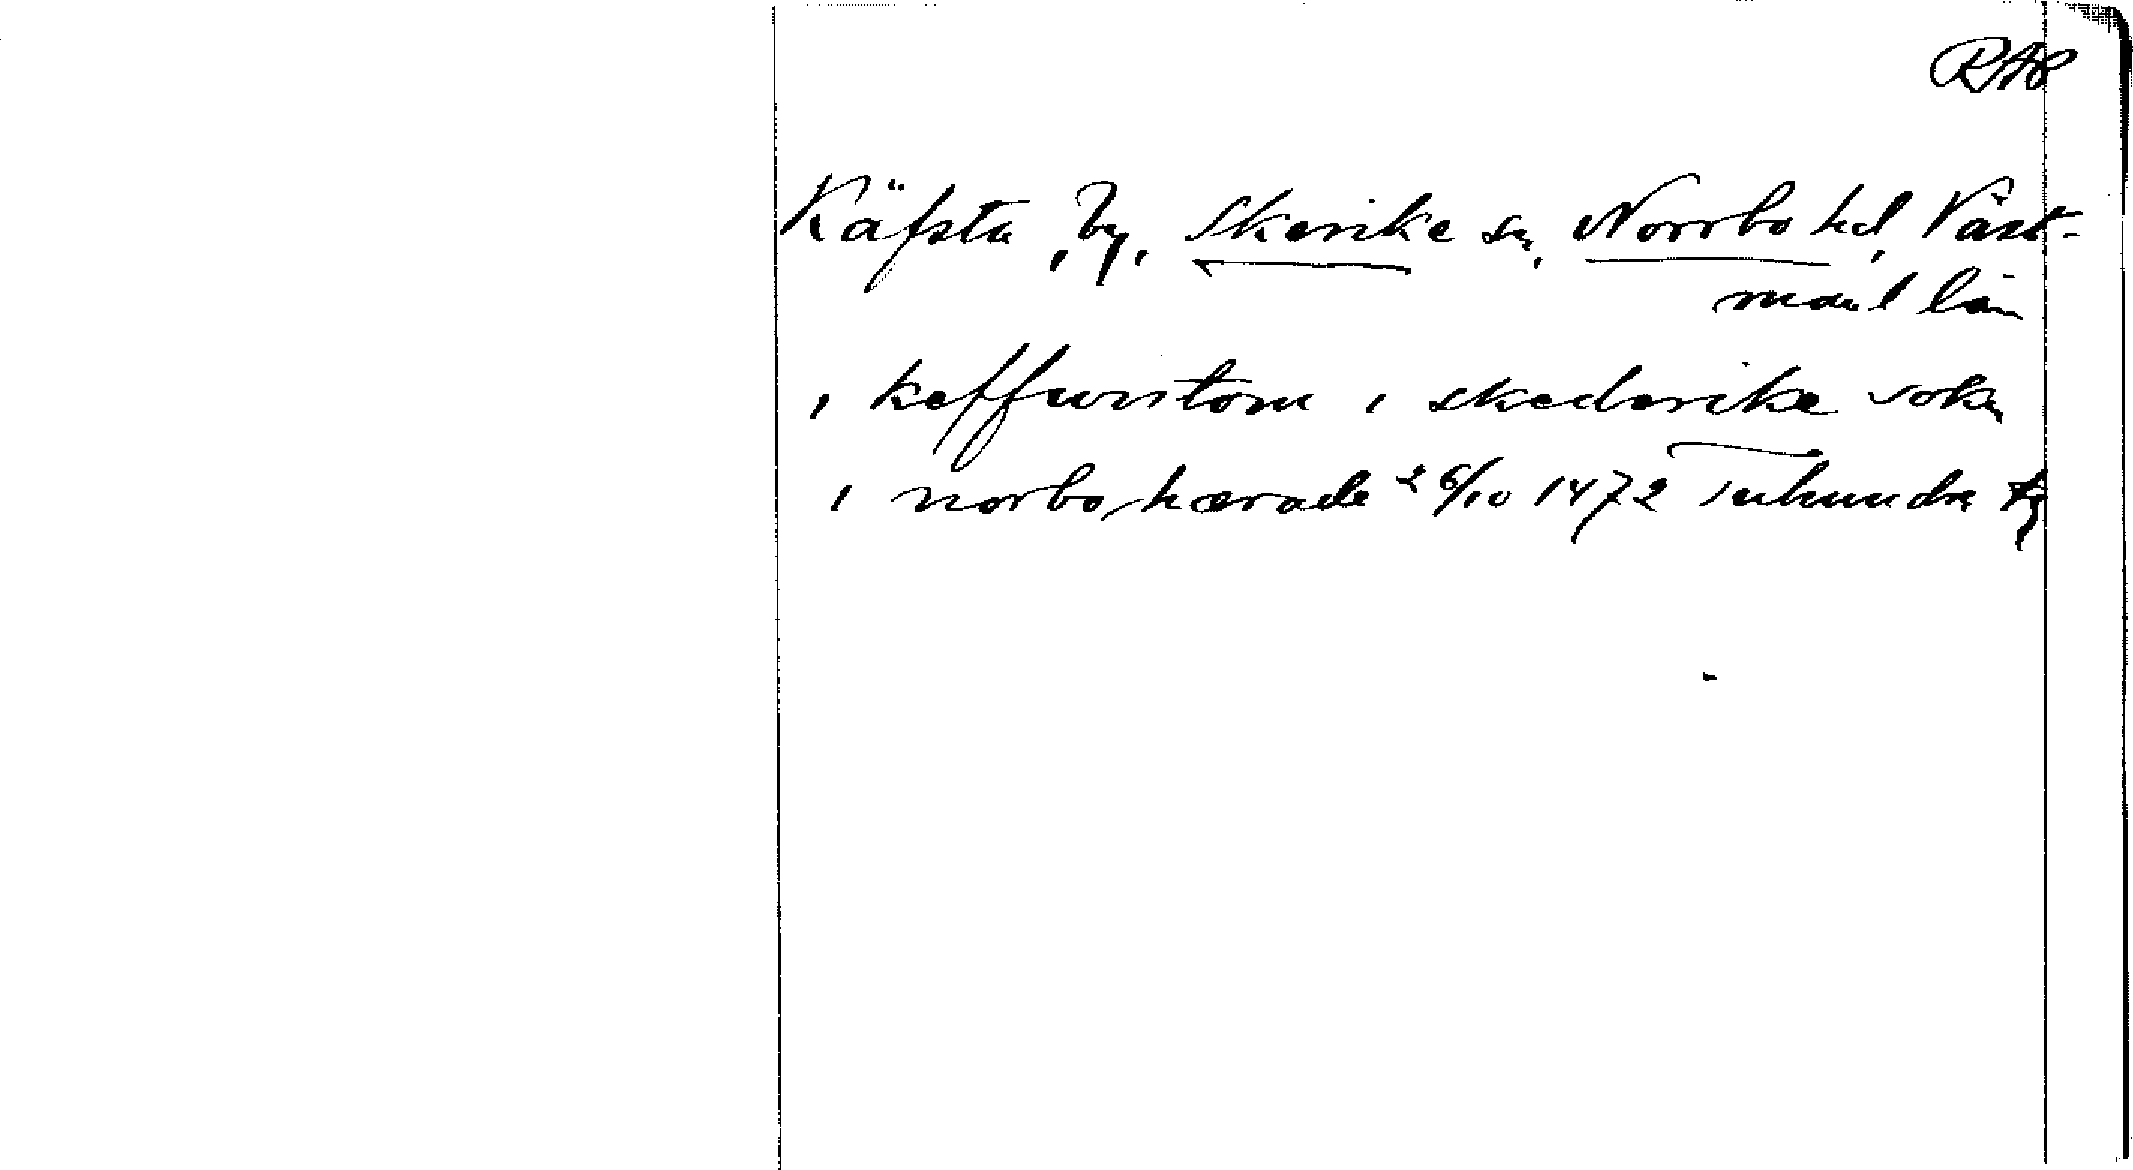 RAP
Käfsta, by, Skerike sn, Norrbo hd, Väst-
manl län
i keffwistom i skederike sokn
i norbo hærade 26/10 1472